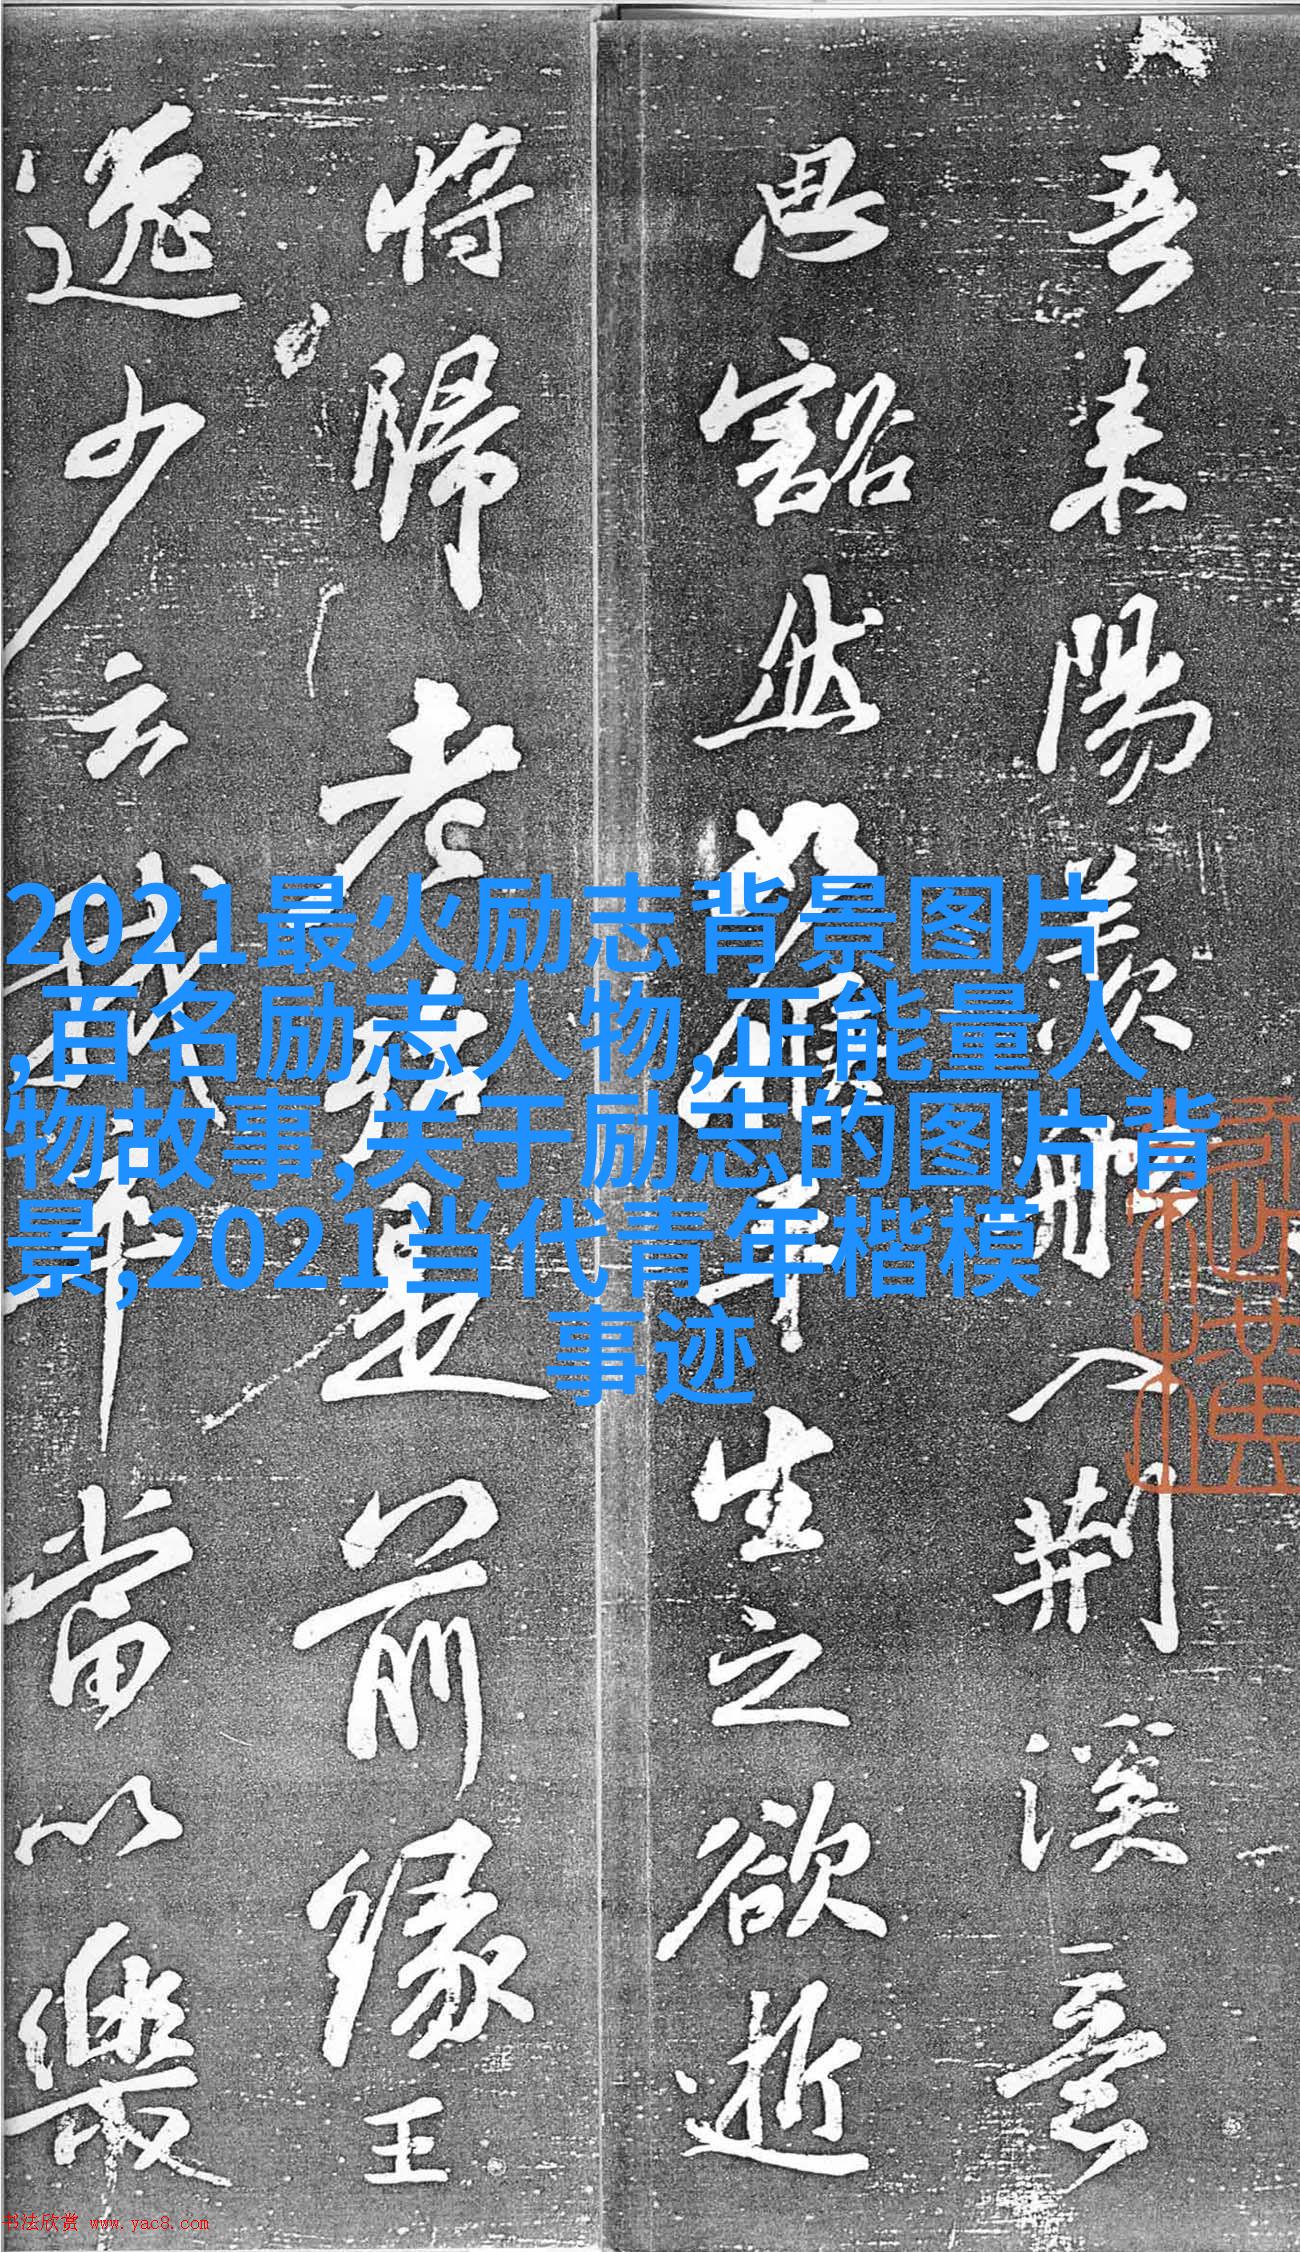 吾来陽羨船入荆溪意
思豁然如惬平生之欲逝
将歸老殆是前緣王
逸少云我卒當以樂
2021最火励志背景图片
,百名励志人物,正能量人
物故事,关于励志的图片背
景,2021当代青年楷模
事迹
书法欣赏 www.yac8.com